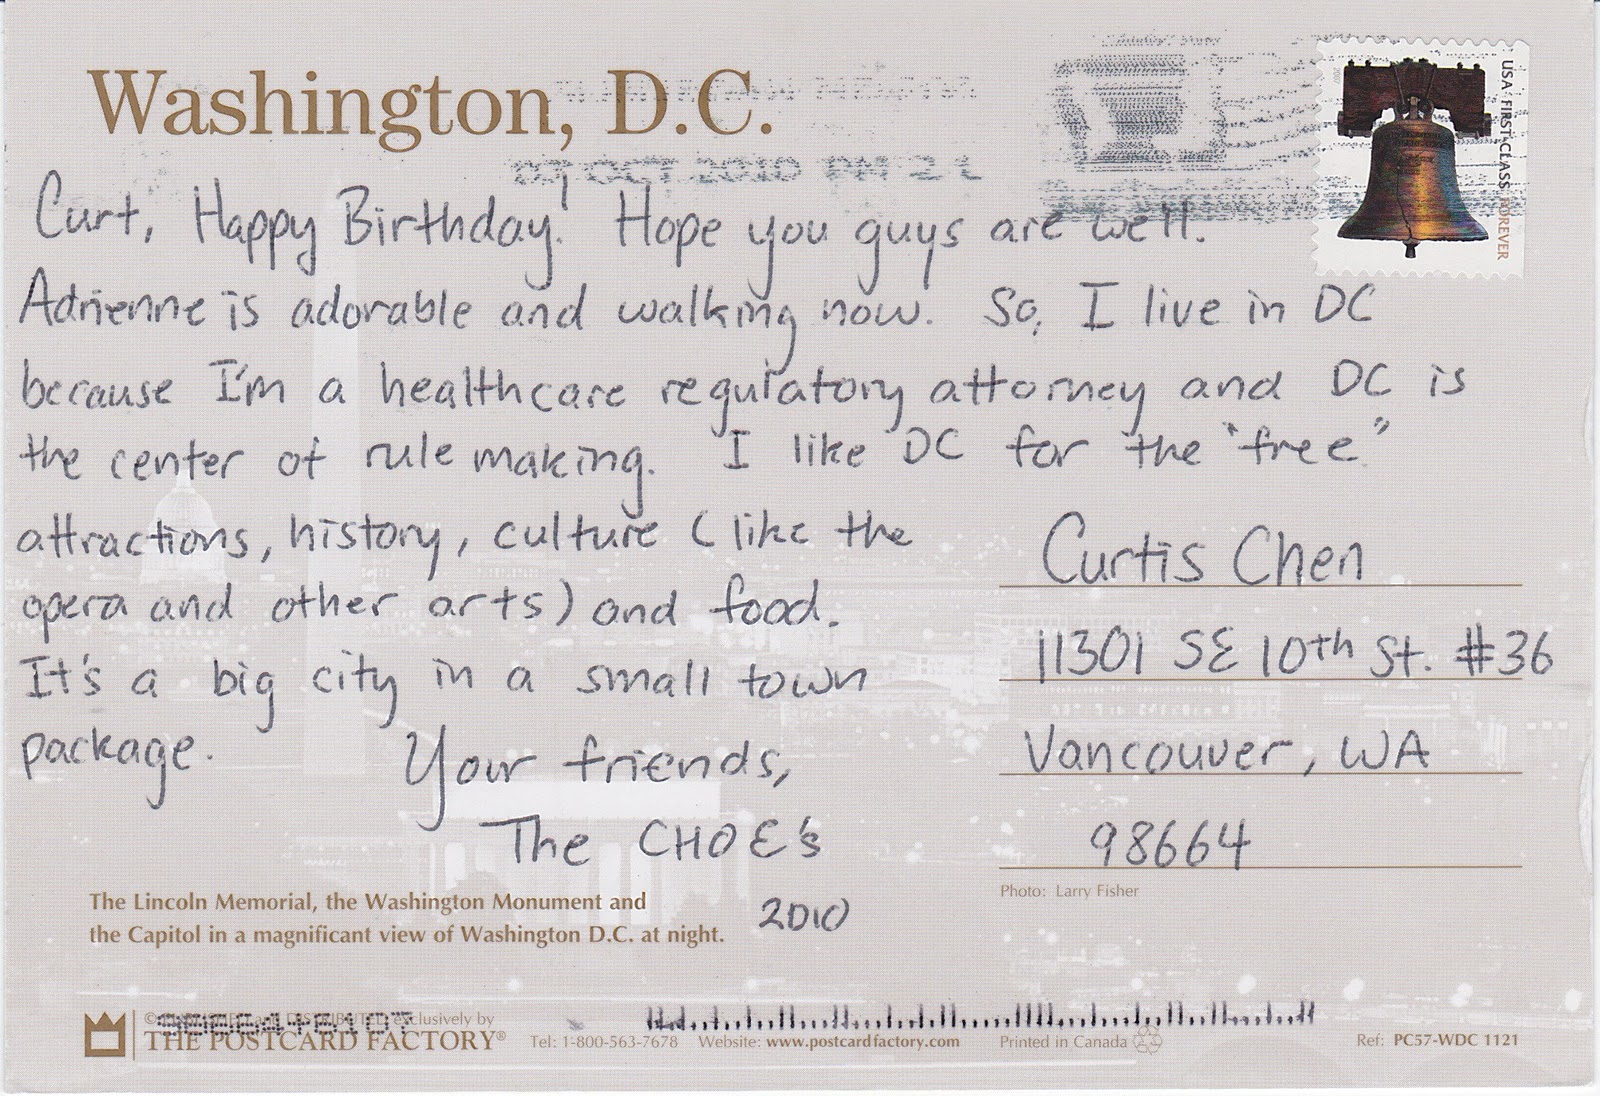 Washington, D.C.
07 OCT 2010 PM 2 L
USA FIRST-CLASS FOREVER
Curt, Happy Birthday! Hope you guys are well.
Adrienne is adorable and walking now. So, I live in DC
because I'm a healthcare regulatory attorney and DC is
the center of rule making. I like DC for the "free"
attractions, history, culture (like the
opera and other arts) and food.
It's a big city in a small town
package.
Your friends,
The CHOE's
2010
Curtis Chen
11301 SE 10th St. #36
Vancouver, WA
98664
Photo: Larry Fisher
The Lincoln Memorial, the Washington Monument and
the Capitol in a magnificant view of Washington D.C. at night.
© and DISTRIBUTED exclusively by
THE POSTCARD FACTORY®
Tel: 1-800-563-7678 Website: www.postcardfactory.com Printed in Canada Ref: PC57-WDC 1121